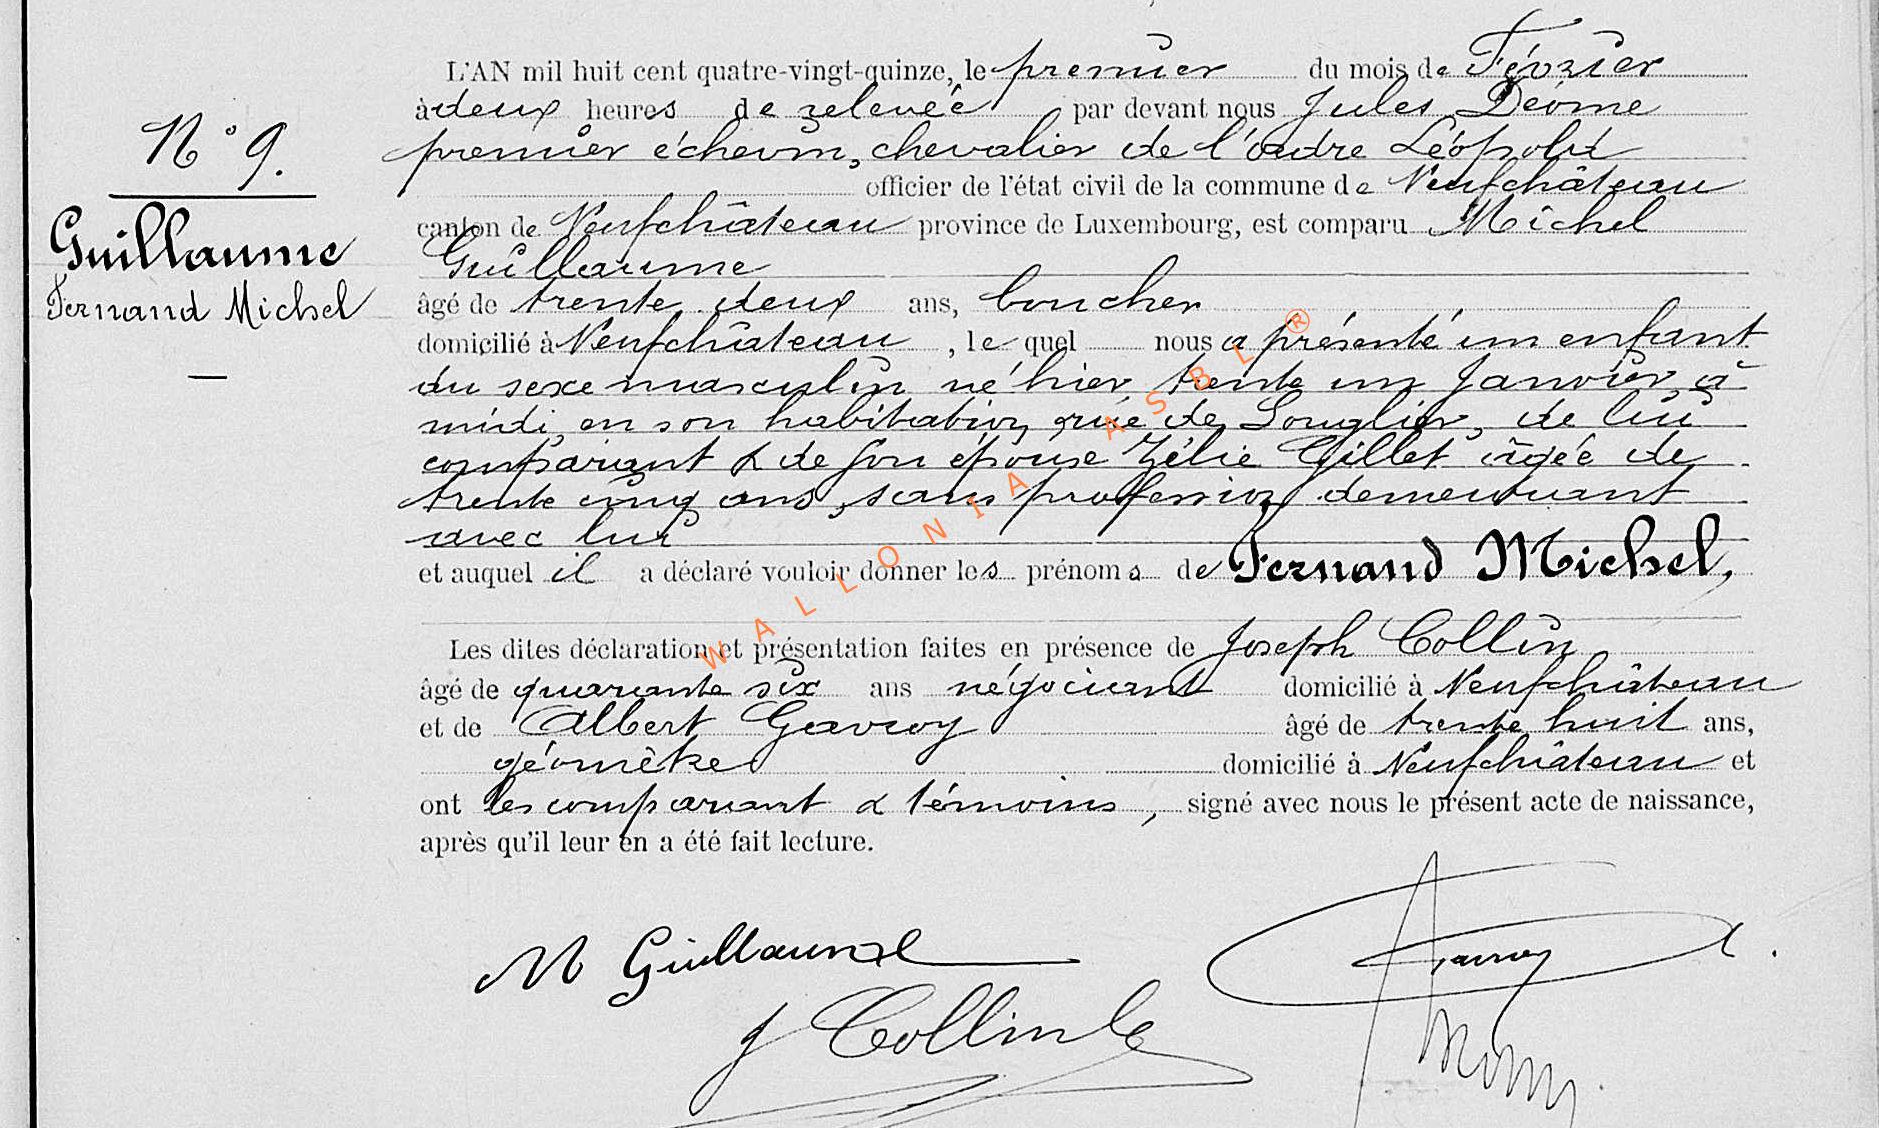 N° 9.
Guillaume
Fernand Michel
L'AN mil huit cent quatre-vingt-quinze, le premier du mois de Février
à deux heures de relevée par devant nous Jules Déome
premier échevin, chevalier de l'ordre Léopold
officier de l'état civil de la commune de Neufchâteau
canton de Neufchâteau province de Luxembourg, est comparu Michel
Guillaume
âgé de trente deux ans, boucher
domicilié à Neufchâteau, le quel nous a présenté un enfant
du sexe masculin né hier, trente un Janvier, à
midi, en son habitation, rue de, de lui
comparant & de son épouse Zélie Gillet âgée de
trente cinq ans, sans profession demeurant
avec lui
et auquel il a déclaré vouloir donner les prénoms de Fernand Michel,
Les dites déclaration et présentation faites en présence de Joseph Collin
âgé de quarante six ans négociant domicilié à Neufchâteau
et de Albert Gavroy âgé de trente huit ans,
géomètre domicilié à Neufchâteau et
ont les comparant & témoins, signé avec nous le présent acte de naissance,
après qu'il leur en a été fait lecture.
M Guillaume
Gavroy
J Collin
WALLONIA ASBL ®